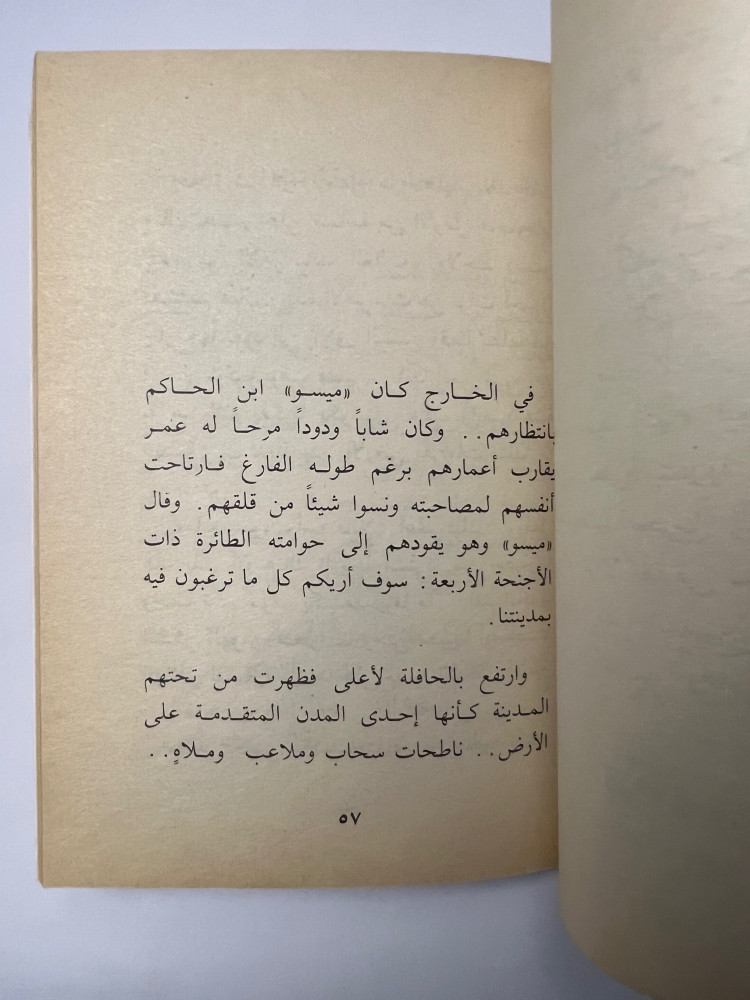 في الخارج كان «ميسو» ابن الحاكم
بانتظارهم.. وكان شاباً ودوداً مرحاً له عمر
يقارب أعمارهم برغم طوله الفارغ فارتاحت
أنفسهم لمصاحبته ونسوا شيئاً من قلقهم. وقال
«ميسو» وهو يقودهم إلى حوامته الطائرة ذات
الأجنحة الأربعة: سوف أريكم كل ما ترغبون فيه
بمدينتنا.
وارتفع بالحافلة لأعلى فظهرت من تحتهم
المدينة كأنها إحدى المدن المتقدمة على
الأرض.. ناطحات سحاب وملاعب وملاهٍ..
٥٧